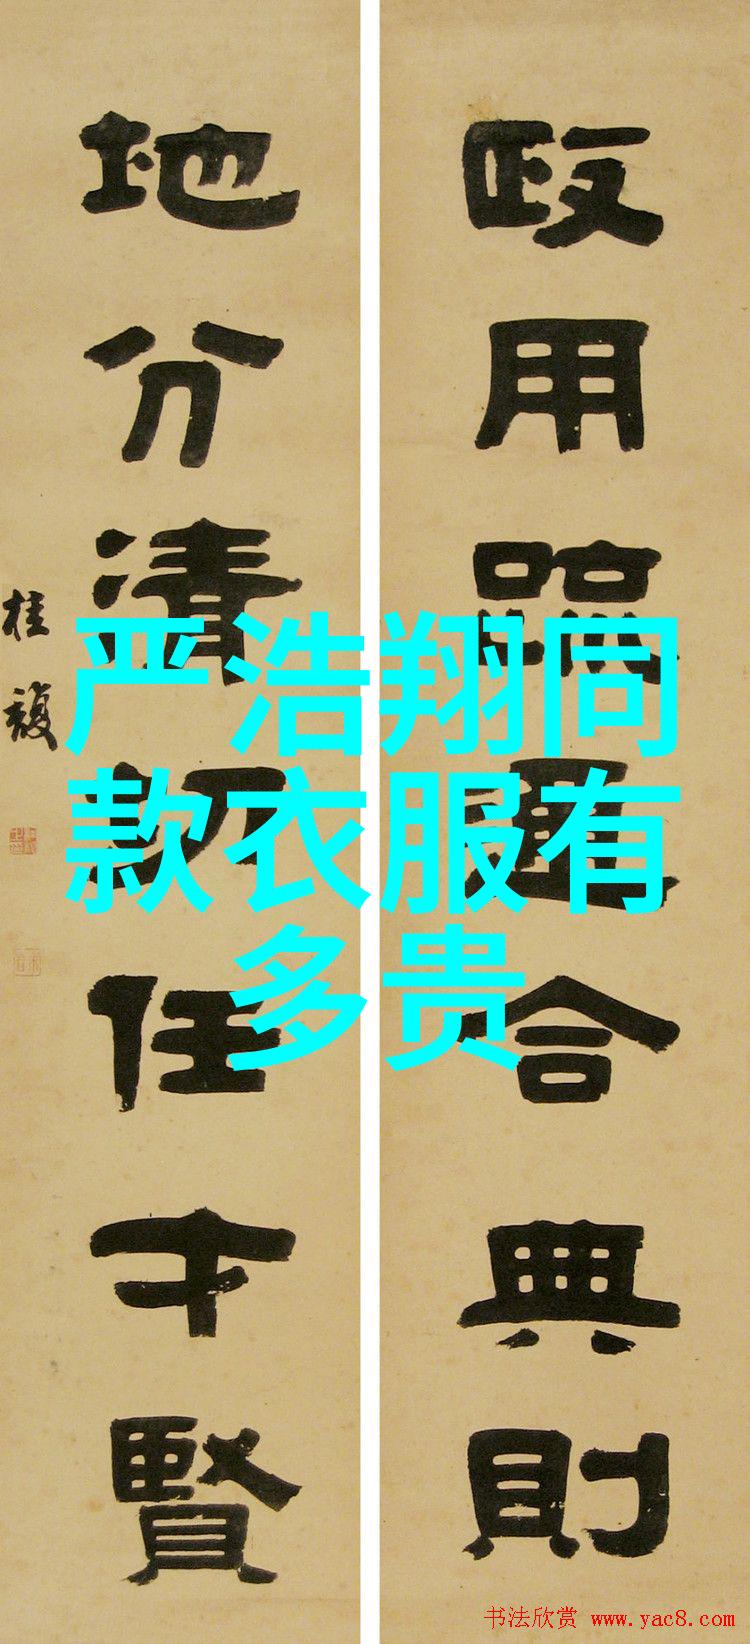 政用疏通合典則
地分清切任才賢
桂馥
严浩翔同
款衣服有
多贵
书法欣赏 www.yac8.com